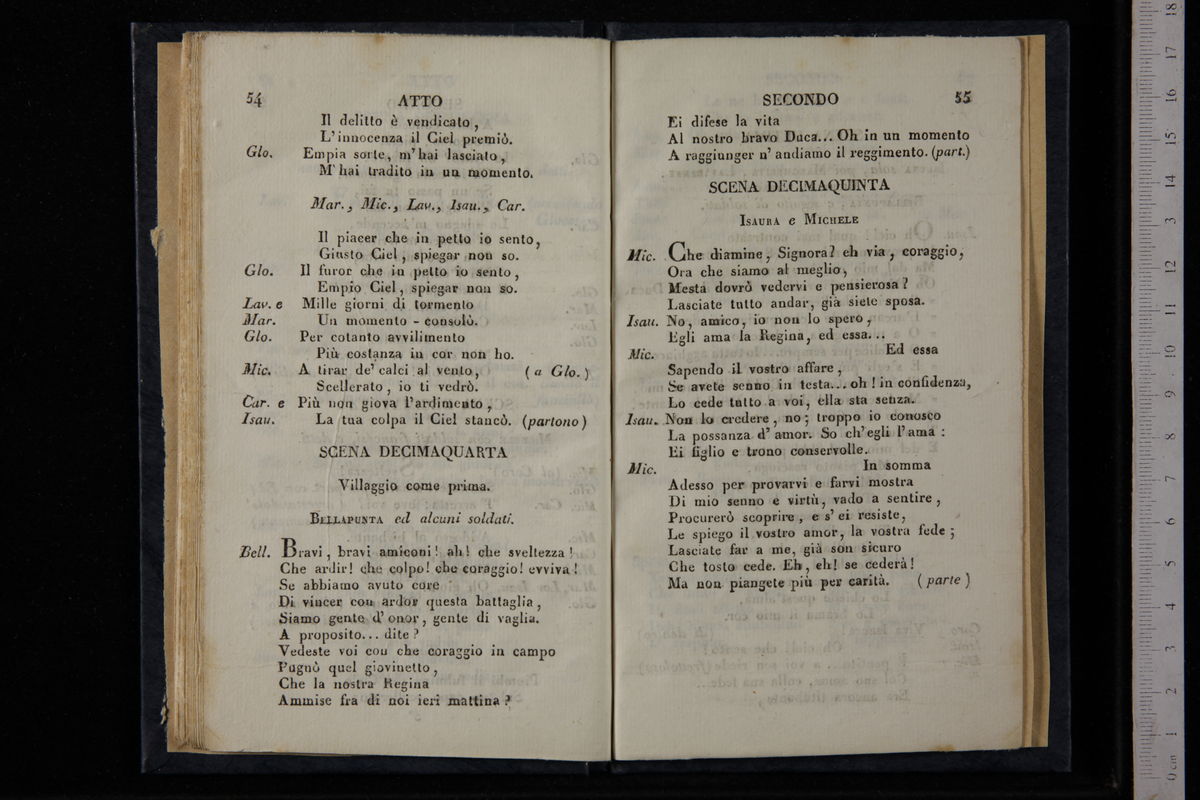 54
ATTO
Il delitto è vendicato,
L'innocenza il Ciel premiò.
Glo. Empia sorte, m'hai lasciato,
M'hai tradito in un momento.
Mar., Mic., Lav., Isau., Car.
Il piacer che in petto io sento,
Giusto Ciel, spiegar non so.
Glo. Il furor che in petto io sento,
Empio Ciel, spiegar non so.
Lav. e Mille giorni di tormento
Mar. Un momento - consolò.
Glo. Per cotanto avvilimento
Più costanza in cor non ho.
Mic. A tirar de' calci al vento, (a Glo.)
Scellerato, io ti vedrò.
Car. e Più non giova l'ardimento,
Isau. La tua colpa il Ciel stancò. (partono)
SCENA DECIMAQUARTA
Villaggio come prima.
BELLAPUNTA ed alcuni soldati.
Bell. Bravi, bravi amiconi! ah! che sveltezza!
Che ardir! che colpo! che coraggio! evviva!
Se abbiamo avuto core
Di vincer con ardor questa battaglia,
Siamo gente d'onor, gente di vaglia.
A proposito... dite?
Vedeste voi con che coraggio in campo
Pugnò quel giovinetto,
Che la nostra Regina
Ammise fra di noi ieri mattina?
SECONDO
55
Ei difese la vita
Al nostro bravo Duca... Oh in un momento
A raggiunger n'andiamo il reggimento. (part.)
SCENA DECIMAQUINTA
ISAURA e MICHELE
Mic. Che diamine, Signora? eh via, coraggio,
Ora che siamo al meglio,
Mesta dovrò vedervi e pensierosa?
Lasciate tutto andar, già siete sposa.
Isau. No, amico, io non lo spero,
Egli ama la Regina, ed essa...
Mic. Ed essa
Sapendo il vostro affare,
Se avete senno in testa... oh! in confidenza,
Lo cede tutto a voi, ella sta senza.
Isau. Non lo credere, no; troppo io conosco
La possanza d'amor. So ch'egli l'ama:
Ei figlio e trono conservolle.
Mic. In somma
Adesso per provarvi e farvi mostra
Di mio senno e virtù, vado a sentire,
Procurerò scoprire, e s'ei resiste,
Le spiego il vostro amor, la vostra fede;
Lasciate far a me, già son sicuro
Che tosto cede. Eh, eh! se cederà!
Ma non piangete più per carità. (parte)
0 cm 1 2 3 4 5 6 7 8 9 10 11 12 13 14 15 16 17 18